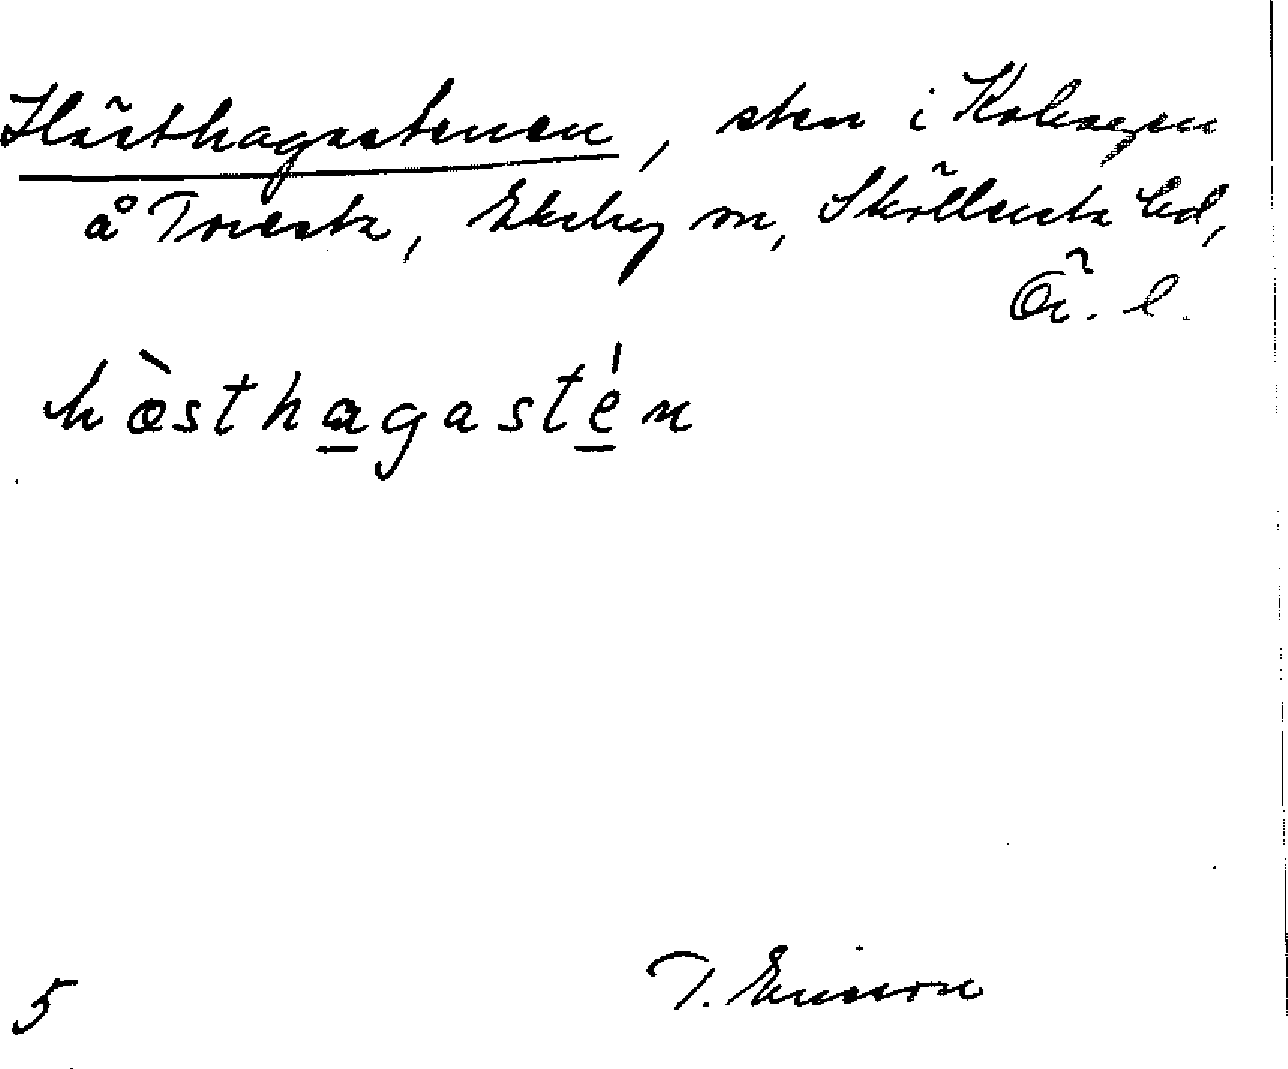 Hästhagastenen, sten i Kohagen
å Toresta, Ekeby sn, Sköllersta hd,
Ör. l.
hὰsthagastén
5 T. Ericson